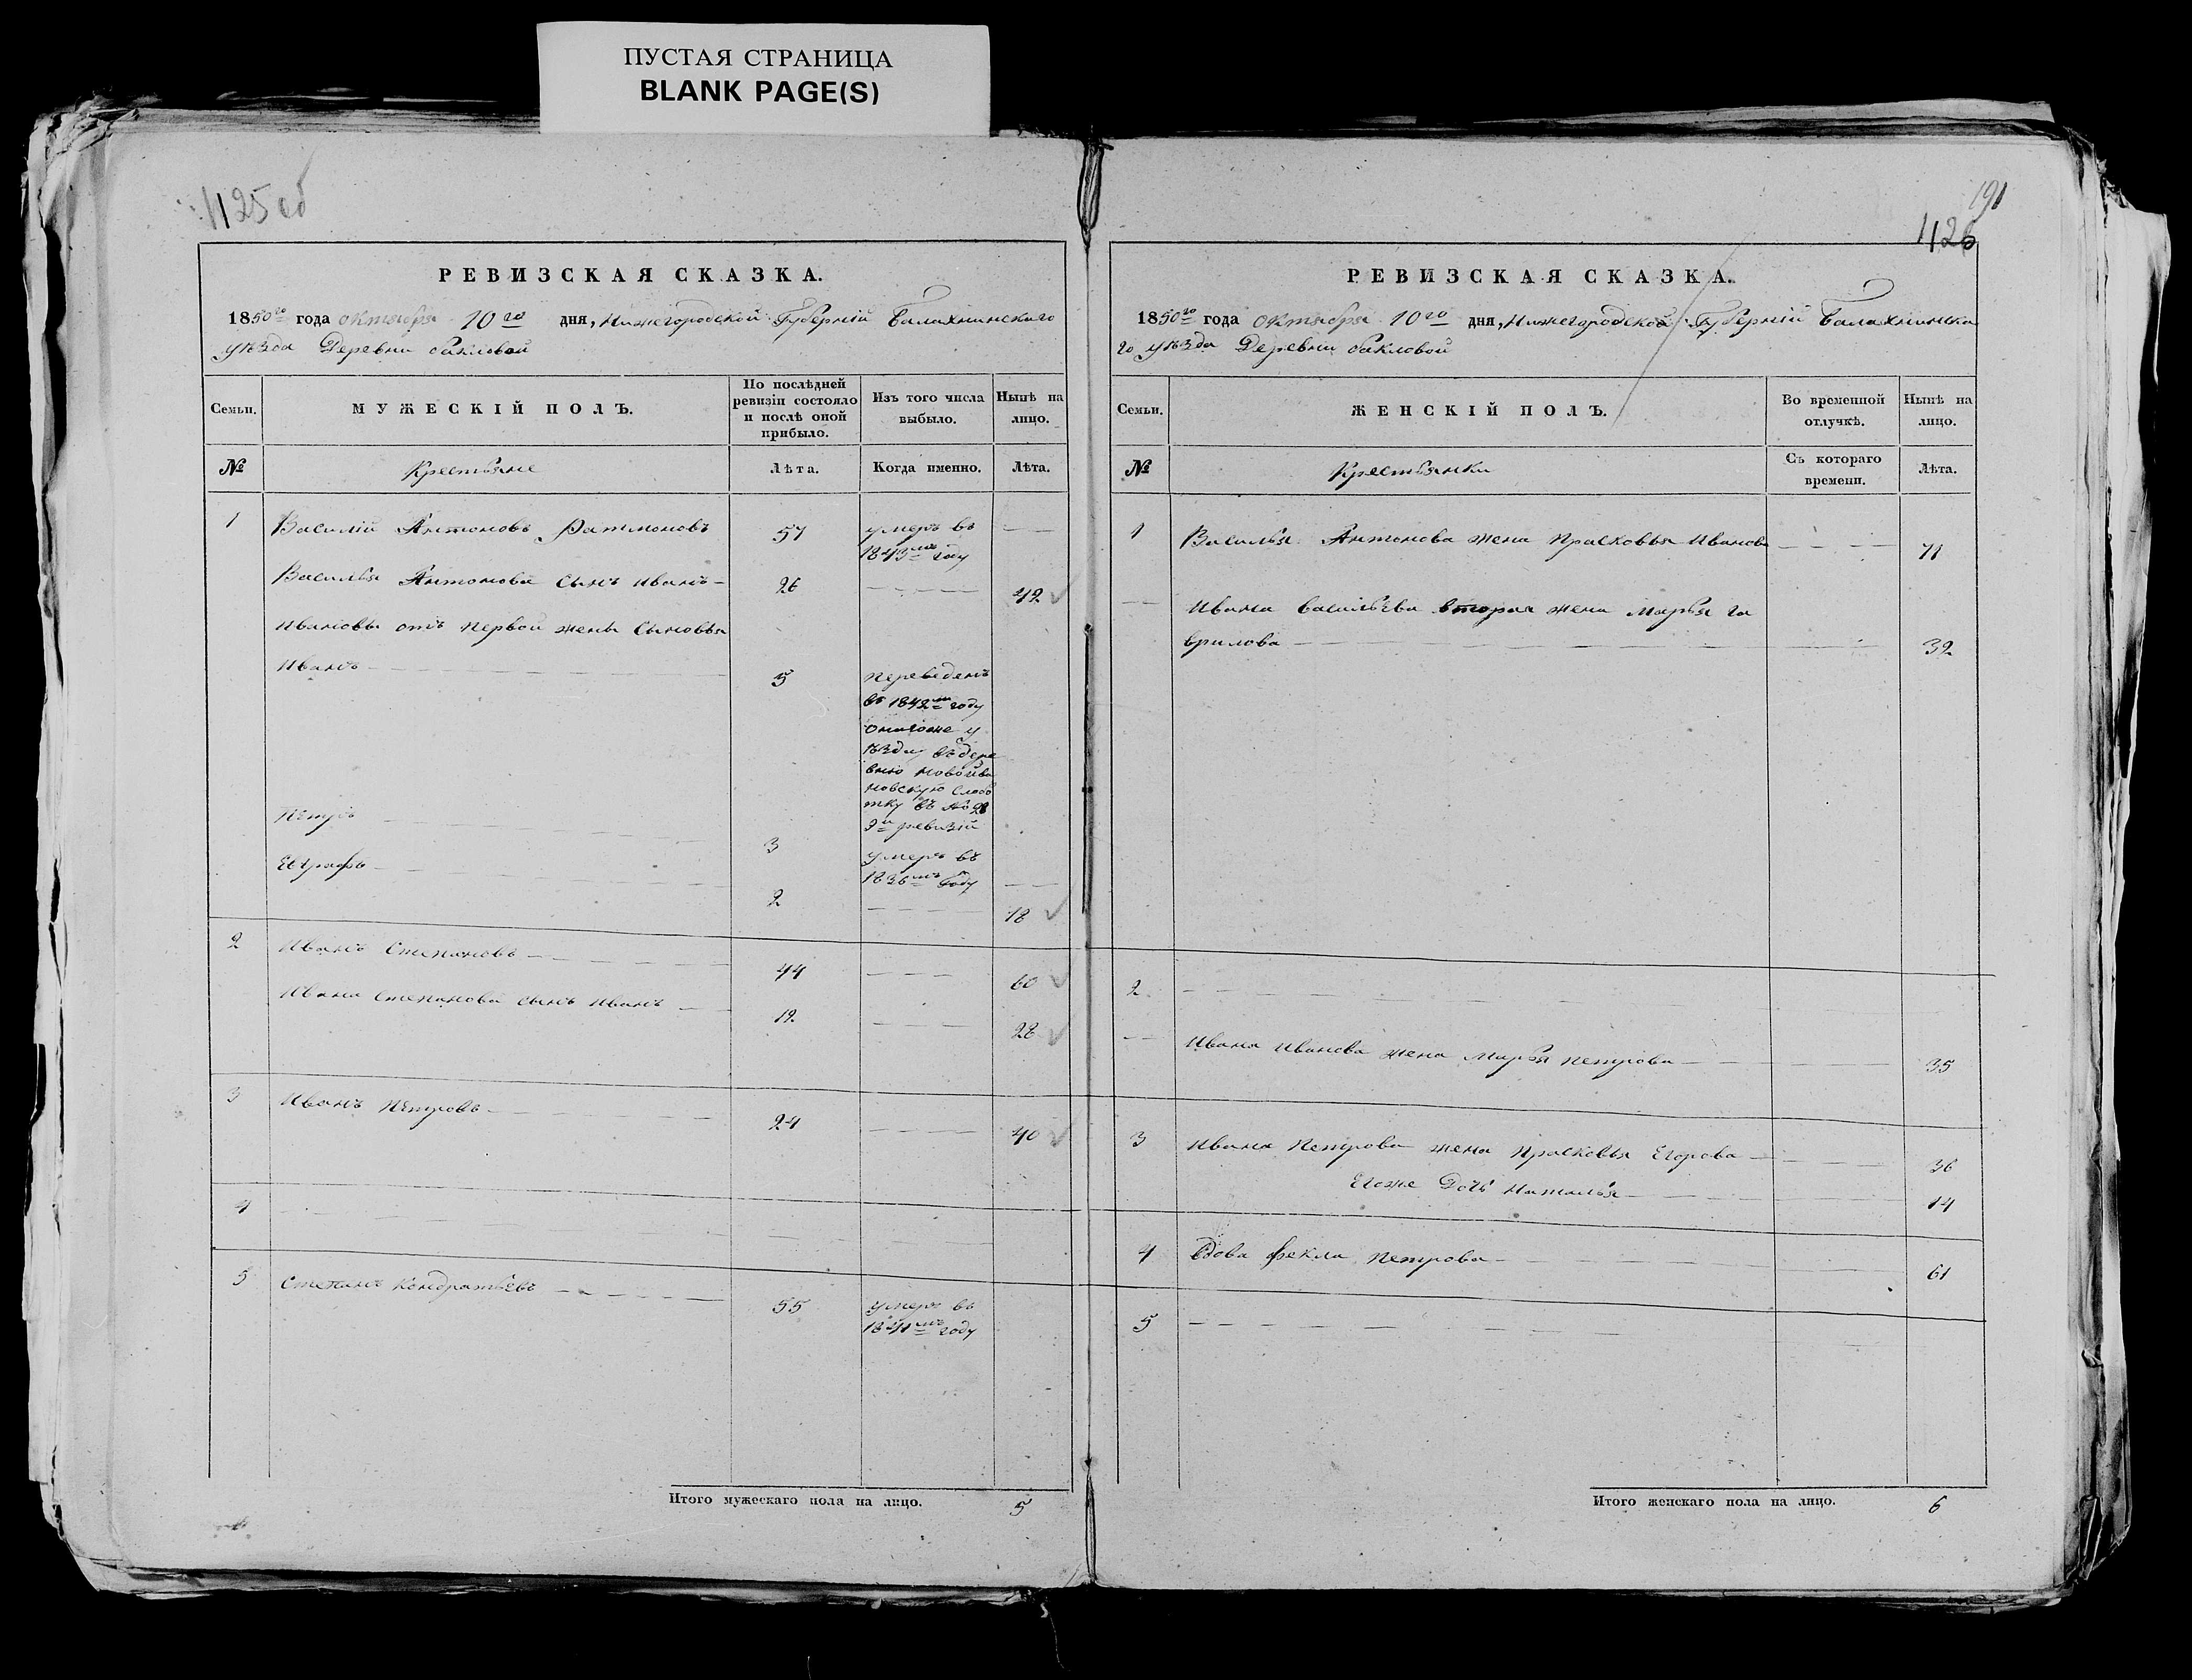 ПУСТАЯ СТРАНИЦА
BLANK PAGE(S)
1125 об
РЕВИЗСКАЯ СКАЗКА.
1850го года октября 10го дня, Нижегородской Губерніи Балахнинскаго
уѣзда Деревни бакловой
Семьи.
МУЖЕСКІЙ ПОЛЪ.
По послѣдней
ревизіи состояло
и послѣ оной
прибыло.
Изъ того числа
выбыло.
Нынѣ на
лицо.
№
Крестьяне
Лѣта.
Когда именно.
Лѣта.
1 Василій Антоновъ 57 умеръ въ — —
1843мъ году
Василья Антонова сынъ иванъ — 26 — — — — 42
ивановы отъ первой жены сыновья
иванъ — — — — — 5 переведенъ
въ 1842м году
уѣзду въ дере
вню новоива
новскую слобо
тку въ № 28
9й ревизіи
Петръ — — — — 3 умеръ въ
1836мъ году — —
Евграфъ — — — — 2 — — — — 18
2 иванъ Степановъ — — — — 44 — — — 60
ивана степанова сынъ иванъ — — 12 — — — — 28
3 иванъ Петровъ — — — — 24 — — — — 40
4 — — — — — — — —
5 степанъ кондратьевъ — — — — 55 умеръ въ
1841мъ году
Итого мужескаго пола на лицо. 5
191
1126
РЕВИЗСКАЯ СКАЗКА.
1850го года октября 10го дня, Нижегородской Губерніи Балахнинска
го уѣзда Деревни бакловой
Семьи.
ЖЕНСКІЙ ПОЛЪ.
Во временной
отлучкѣ.
Нынѣ на
лицо.
№
Крестьянки
Съ котораго
времени.
Лѣта.
1 Василья Антонова жена Прасковья Иванова — — — 71
— — ивана васильева вторая жена марья га
врилова — — — — — — 32
2 — — — — — — — —
— — ивана иванова жена марья петрова — — — — 35
3 ивана Петрова жена прасковья Егорова — — — — 36
Егоже Дочь наталья — — — — 14
4 вдова фекла петрова — — — — 61
5 — — — — — — —
Итого женскаго пола на лицо. 6